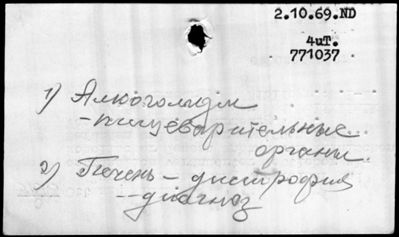 2.10.69.ND
4иТ.
771037
1) Алкоголизм
-пищеварительные
органы.
2) Печень - дистрофия
--диагноз